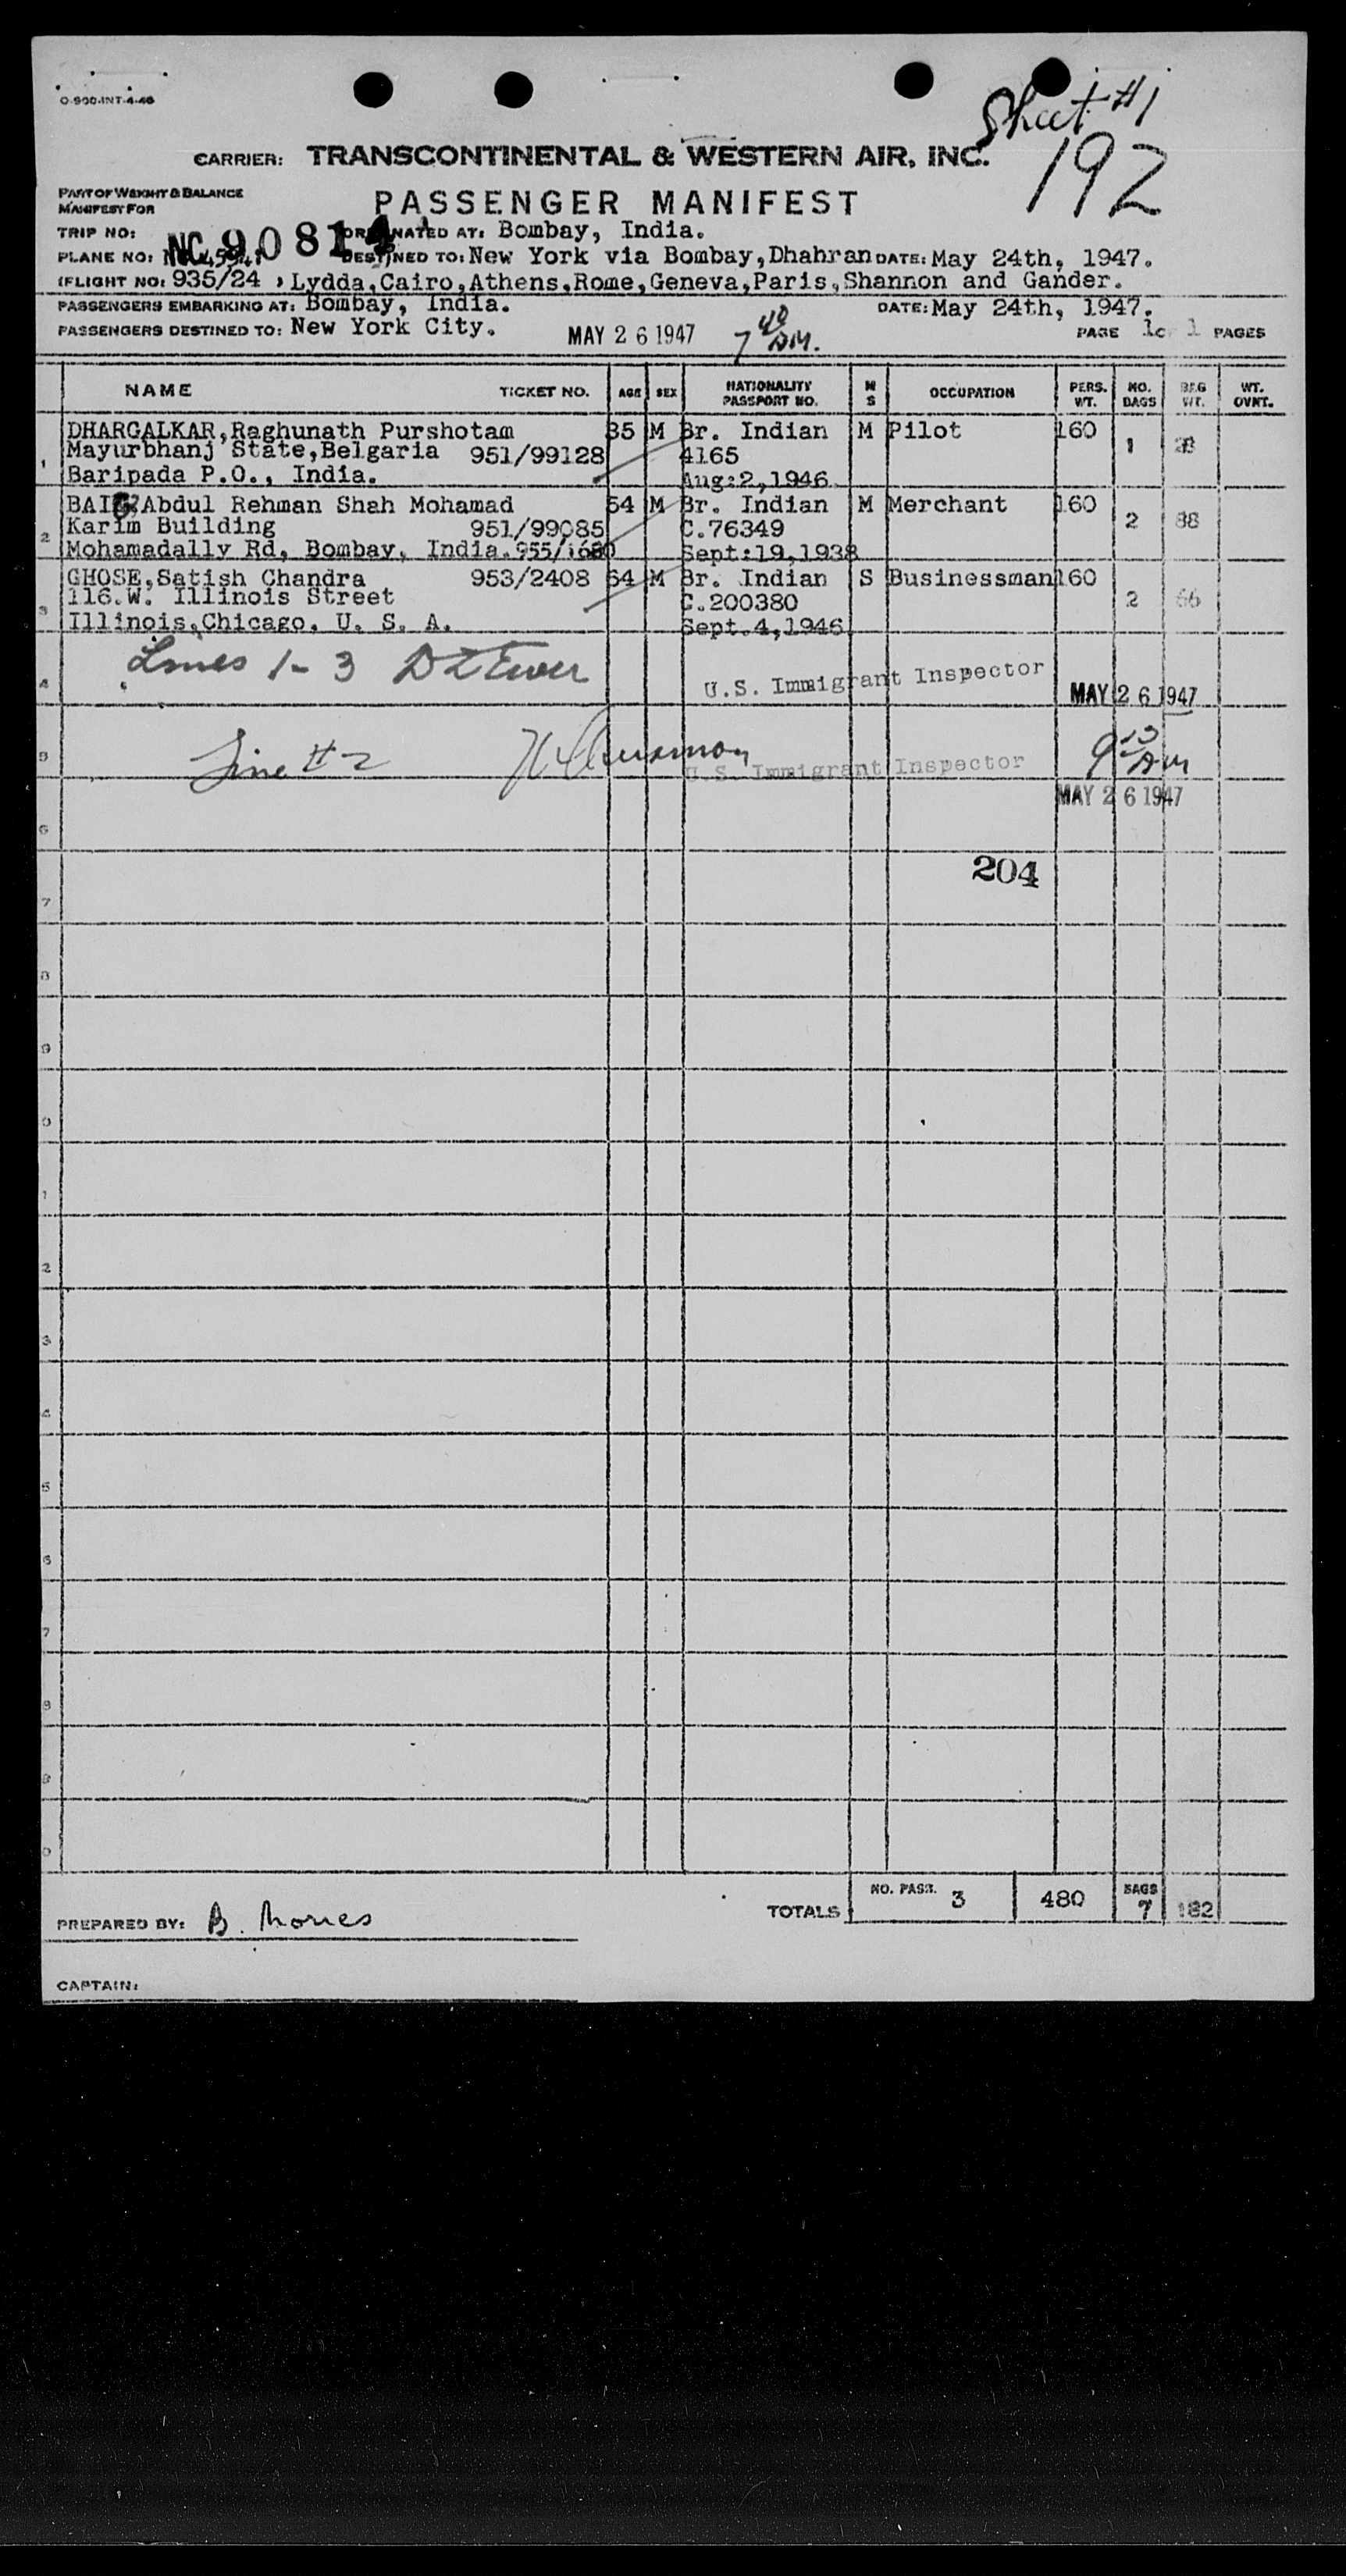 O-900-INT-4-46
Sheet #1
192
CARRIER: TRANSCONTINENTAL & WESTERN AIR, INC.
PART OF WEIGHT & BALANCE
MANIFEST FOR
PASSENGER MANIFEST
TRIP NO: ORIGINATED AT: Bombay, India.
PLANE NO: NC 90814 DESTINED TO: New York via Bombay, Dhahran DATE: May 24th, 1947.
(FLIGHT NO: 935/24 , Lydda, Cairo, Athens, Rome, Geneva, Paris, Shannon and Gander.
PASSENGERS EMBARKING AT: Bombay, India. DATE: May 24th, 1947.
PASSENGERS DESTINED TO: New York City. MAY 26 1947 7 40 AM. PAGE 1 of 1 PAGES
NAME TICKET NO. AGE SEX NATIONALITY PASSPORT NO. M S OCCUPATION PERS. WT. NO. BAGS BAG WT. WT. OVNT.
DHARGALKAR, Raghunath Purshotam 35 M Br. Indian M Pilot 160
Mayurbhanj State, Belgaria 951/99128 4165 1 28
1 Baripada P.O., India. Aug:2,1946
BAIG, Abdul Rehman Shah Mohamad 54 M Br. Indian M Merchant 160
Karim Building 951/99085 C.76349 2 88
2 Mohamadally Rd, Bombay, India. 955/1680 Sept:19,1938
GHOSE, Satish Chandra 953/2408 54 M Br. Indian S Businessman 160
116.W. Illinois Street C.200380 2 66
3 Illinois, Chicago. U. S. A. Sept.4,1946
Lines 1-3
4 U.S. Immigrant Inspector MAY 26 1947
5 Line #2 U.S. Immigrant Inspector 9 13 AM
MAY 26 1947
6
204
7
8
9
0
1
2
3
4
5
6
7
8
9
0
TOTALS NO. PASS. 3 480 BAGS 7 182
PREPARED BY: B.
CAPTAIN: